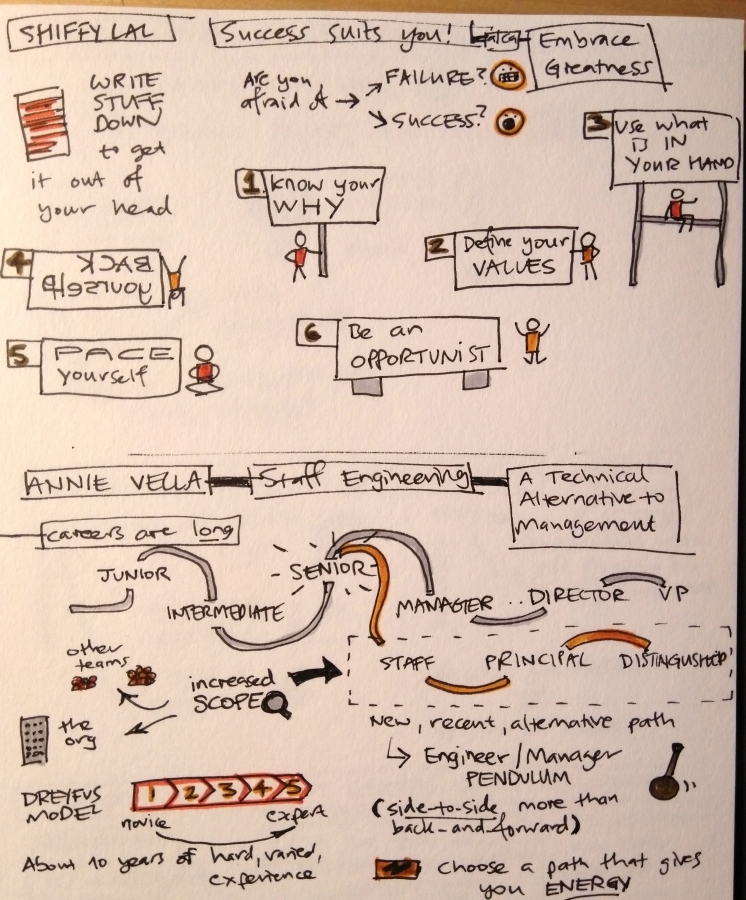 SHIFFY LAL
Success suits you!
Embrace
Greatness
WRITE
STUFF
DOWN
to get
it out of
your head
Are you
afraid of → FAILURE?
SUCCESS?
1. Know your
WHY
2 Define your
VALUES
3 Use what
IS IN
YOUR HAND
4 YOURSELF
BACK
5 PACE
yourself
6 Be an
OPPORTUNIST
ANNIE VELLA
Staff Engineering
A Technical
Alternative to
Management
careers are long
JUNIOR
INTERMEDIATE
SENIOR
MANAGER .. DIRECTOR VP
STAFF PRINCIPAL
other
teams
increased
SCOPE
the
org
New, recent, alternative path
↳ Engineer/Manager
PENDULUM
(side-to-side, more than
back-and-forward)
DREYFUS
MODEL
1 2 3 4 5
novice expert
About 10 years of hard, varied,
experience
choose a path that gives
you ENERGY